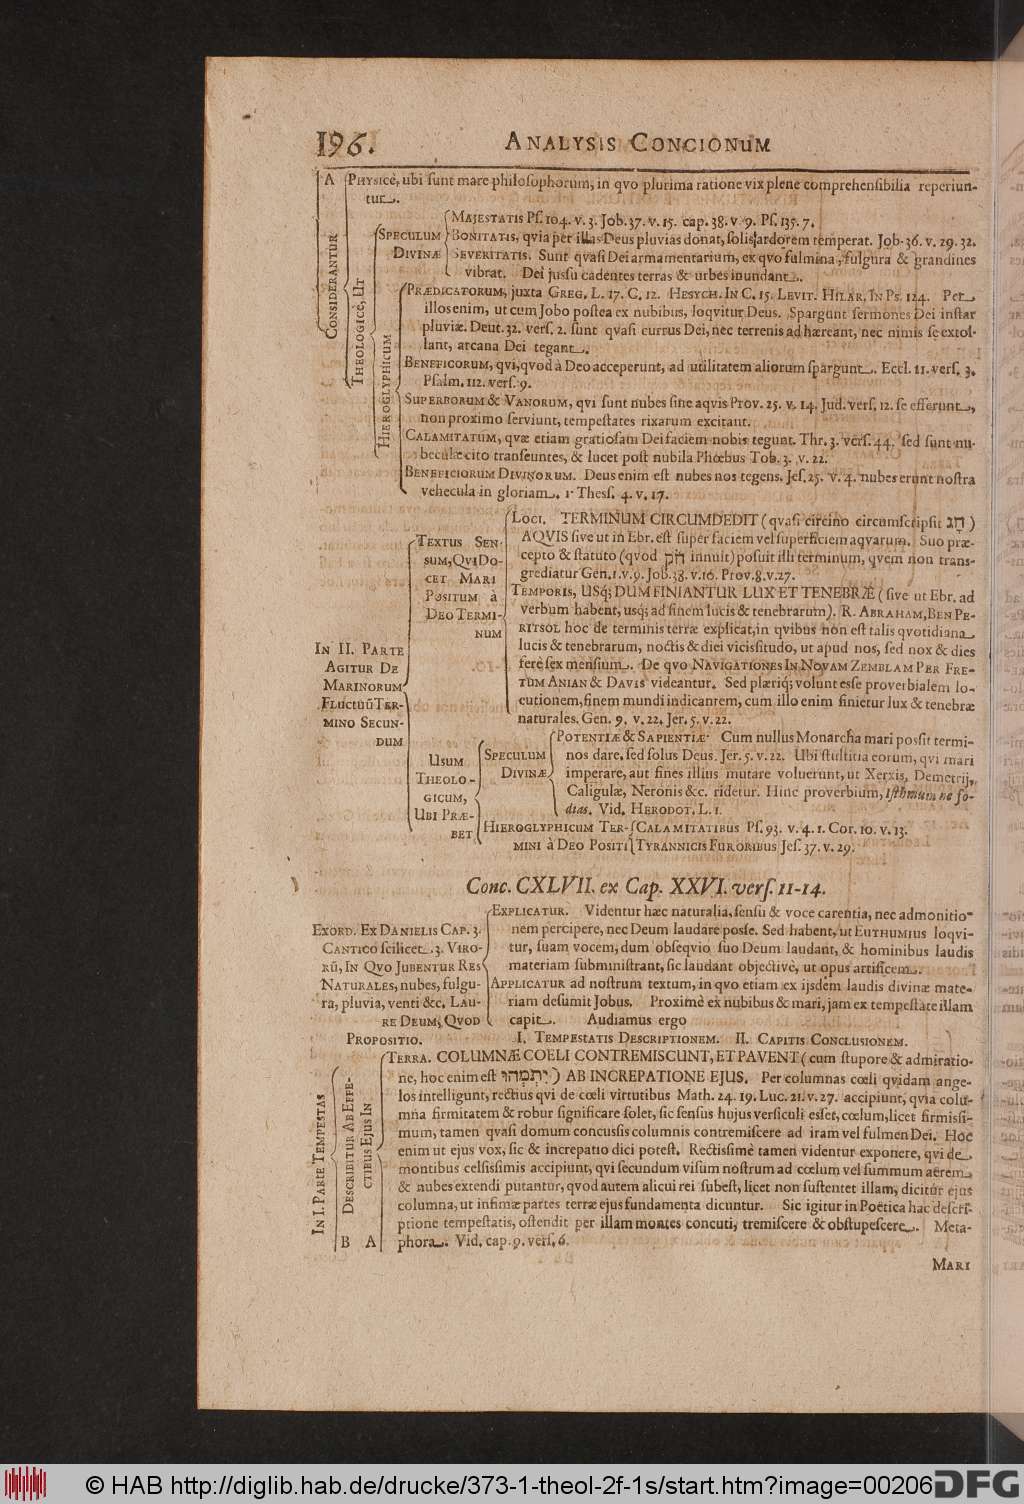 196.
ANALYSIS CONCIONuM
A
CONSIDERANTUR
PHYSICE, ubi ſunt mare philoſophorum, in qvo plurima ratione vix plene comprehenſibilia reperiun-
tur.
THEOLOGICE, UT
SPECULUM
DIVINÆ
MAJESTATIS Pſ. 104. v. 3. Job. 37. v. 15. cap. 38. v. 9. Pſ. 135. 7.
BONITATIS, qvia per illas Deus pluvias donat, ſolis ardorem temperat. Job. 36. v. 29. 32.
SEVERITATIS. Sunt qvaſi Dei armamentarium, ex qvo fulmina, fulgura & grandines
vibrat. Dei juſſu cadentes terras & urbes inundant.
HIEROGLYPHICUM
PRÆDICATORUM, juxta GREG. L. 17. C. 12. HESYCH. IN C. 15. LEVIT. HILAR. IN PS. 124. Per
illos enim, ut cum Jobo poſtea ex nubibus, loqvitur Deus. Spargunt ſermones Dei inſtar
pluviæ. Deut. 32. verſ. 2. ſunt qvaſi currus Dei, nec terrenis ad hæreant, nec nimis ſe extol-
lant, arcana Dei tegant.
BENEFICORUM, qvi, qvod à Deo acceperunt, ad utilitatem aliorum ſpargunt. Eccl. 11. verſ. 3.
Pſalm. 112. verſ. 9.
SUPERBORUM & VANORUM, qvi ſunt nubes ſine aqvis Prov. 25. v. 14. Jud. verſ. 12. ſe efferunt,
non proximo ſerviunt, tempeſtates rixarum excitant.
CALAMITATUM, qvæ etiam gratioſam Dei faciem nobis tegunt. Thr. 3. verſ. 44. ſed ſunt nu-
beculæ cito tranſeuntes, & lucet poſt nubila Phœbus Tob. 3. v. 22.
BENEFICIORUM DIVINORUM. Deus enim eſt nubes nos tegens. Jeſ. 25. v. 4. nubes erunt noſtra
vehecula in gloriam. 1 Theſſ. 4. v. 17.
IN II. PARTE
AGITUR DE
MARINORUM
FLUCTUŨ TER-
MINO SECUN-
DUM
TEXTUS SEN-
SUM, QVI DO-
CET MARI
POSITUM à
DEO TERMI-
NUM
LOCI. TERMINUM CIRCUMDEDIT (qvaſi circino circumſcripſit חָג)
AQVIS ſive ut in Ebr. eſt ſuper faciem vel ſuperficiem aqvarum. Suo præ-
cepto & ſtatuto (qvod חֹק innuit) poſuit illi terminum, qvem non trans-
grediatur Gen. 1. v. 9. Job. 38. v. 16. Prov. 8. v. 27.
TEMPORIS, USq; DUM FINIANTUR LUX ET TENEBRÆ (ſive ut Ebr. ad
verbum habent, usq; ad finem lucis & tenebrarum). R. ABRAHAM, BEN PE-
RITSOL hoc de terminis terræ explicat, in qvibus non eſt talis qvotidiana
lucis & tenebrarum, noctis & diei vicisſitudo, ut apud nos, ſed nox & dies
fere ſex menſium. De qvo NAVIGATIONES IN NOVAM ZEMBLAM PER FRE-
TUM ANIAN & DAVIS videantur. Sed plæriq; volunt esſe proverbialem lo-
cutionem, finem mundi indicantem, cum illo enim finietur lux & tenebræ
naturales. Gen. 9. v. 22. Jer. 5. v. 22.
USUM
THEOLO-
GICUM,
UBI PRÆ-
BET
SPECULUM
DIVINÆ
POTENTIÆ & SAPIENTIÆ. Cum nullus Monarcha mari posſit termi-
nos dare, ſed ſolus Deus. Jer. 5. v. 22. Ubi ſtultitia eorum, qvi mari
imperare, aut fines illius mutare voluerunt, ut Xerxis, Demetrij,
Caligulæ, Neronis &c. ridetur. Hinc proverbium, Iſthmum ne fo-
dias. Vid. HERODOT. L. 1.
HIEROGLYPHICUM TER-
MINI à DEO POSITI
CALAMITATIBUS Pſ. 93. v. 4. 1. Cor. 10. v. 13.
TYRANNICIS FURORIBUS Jeſ. 37. v. 29.
Conc. CXLVII. ex Cap. XXVI. verſ. 11-14.
EXORD. EX DANIELIS CAP. 3.
CANTICO ſcilicet. 3. VIRO-
RŨ, IN QVO JUBENTUR RES
NATURALES, nubes, fulgu-
ra, pluvia, venti &c. LAU-
RE DEUM, QVOD
EXPLICATUR. Videntur hæc naturalia, ſenſu & voce carentia, nec admonitio-
nem percipere, nec Deum laudare poſſe. Sed habent, ut EUTHUMIUS loqvi-
tur, ſuam vocem, dum obſeqvio ſuo Deum laudant, & hominibus laudis
materiam ſubminiſtrant, ſic laudant objective, ut opus artificem.
APPLICATUR ad noſtrum textum, in qvo etiam ex ijsdem laudis divinæ mate-
riam deſumit Jobus. Proximè ex nubibus & mari, jam ex tempeſtate illam
capit. Audiamus ergo
PROPOSITIO. I. TEMPESTATIS DESCRIPTIONEM. II. CAPITIS CONCLUSIONEM.
IN I. PARTE TEMPESTAS
DESCRIBITUR AB EFFE-
CTIBUS EJUS IN
TERRA. COLUMNÆ COELI CONTREMISCUNT, ET PAVENT (cum ſtupore & admiratio-
ne, hoc enim eſt יִתְמְהוּ) AB INCREPATIONE EJUS. Per columnas cœli qvidam ange-
los intelligunt, rectius qvi de cœli virtutibus Math. 24. 19. Luc. 21. v. 27. accipiunt, qvia colu-
mna firmitatem & robur ſignificare ſolet, ſic ſenſus hujus verſiculi esſet, cœlum, licet firmisſi-
mum, tamen qvaſi domum concusſis columnis contremiſcere ad iram vel fulmen Dei. Hoc
enim ut ejus vox, ſic & increpatio dici poteſt. Rectisſimè tamen videntur exponere, qvi de
montibus celſisſimis accipiunt, qvi ſecundum viſum noſtrum ad cœlum vel ſummum aerem
& nubes extendi putantur, qvod autem alicui rei ſubeſt, licet non ſuſtentet illam, dicitur ejus
columna, ut infimæ partes terræ ejus fundamenta dicuntur. Sic igitur in Poëtica hac deſcri-
ptione tempeſtatis, oſtendit per illam montes concuti, tremiſcere & obſtupeſcere. Meta-
B A phora. Vid. cap. 9. verſ. 6.
MARI
© HAB http://diglib.hab.de/drucke/373-1-theol-2f-1s/start.htm?image=00206
DFG